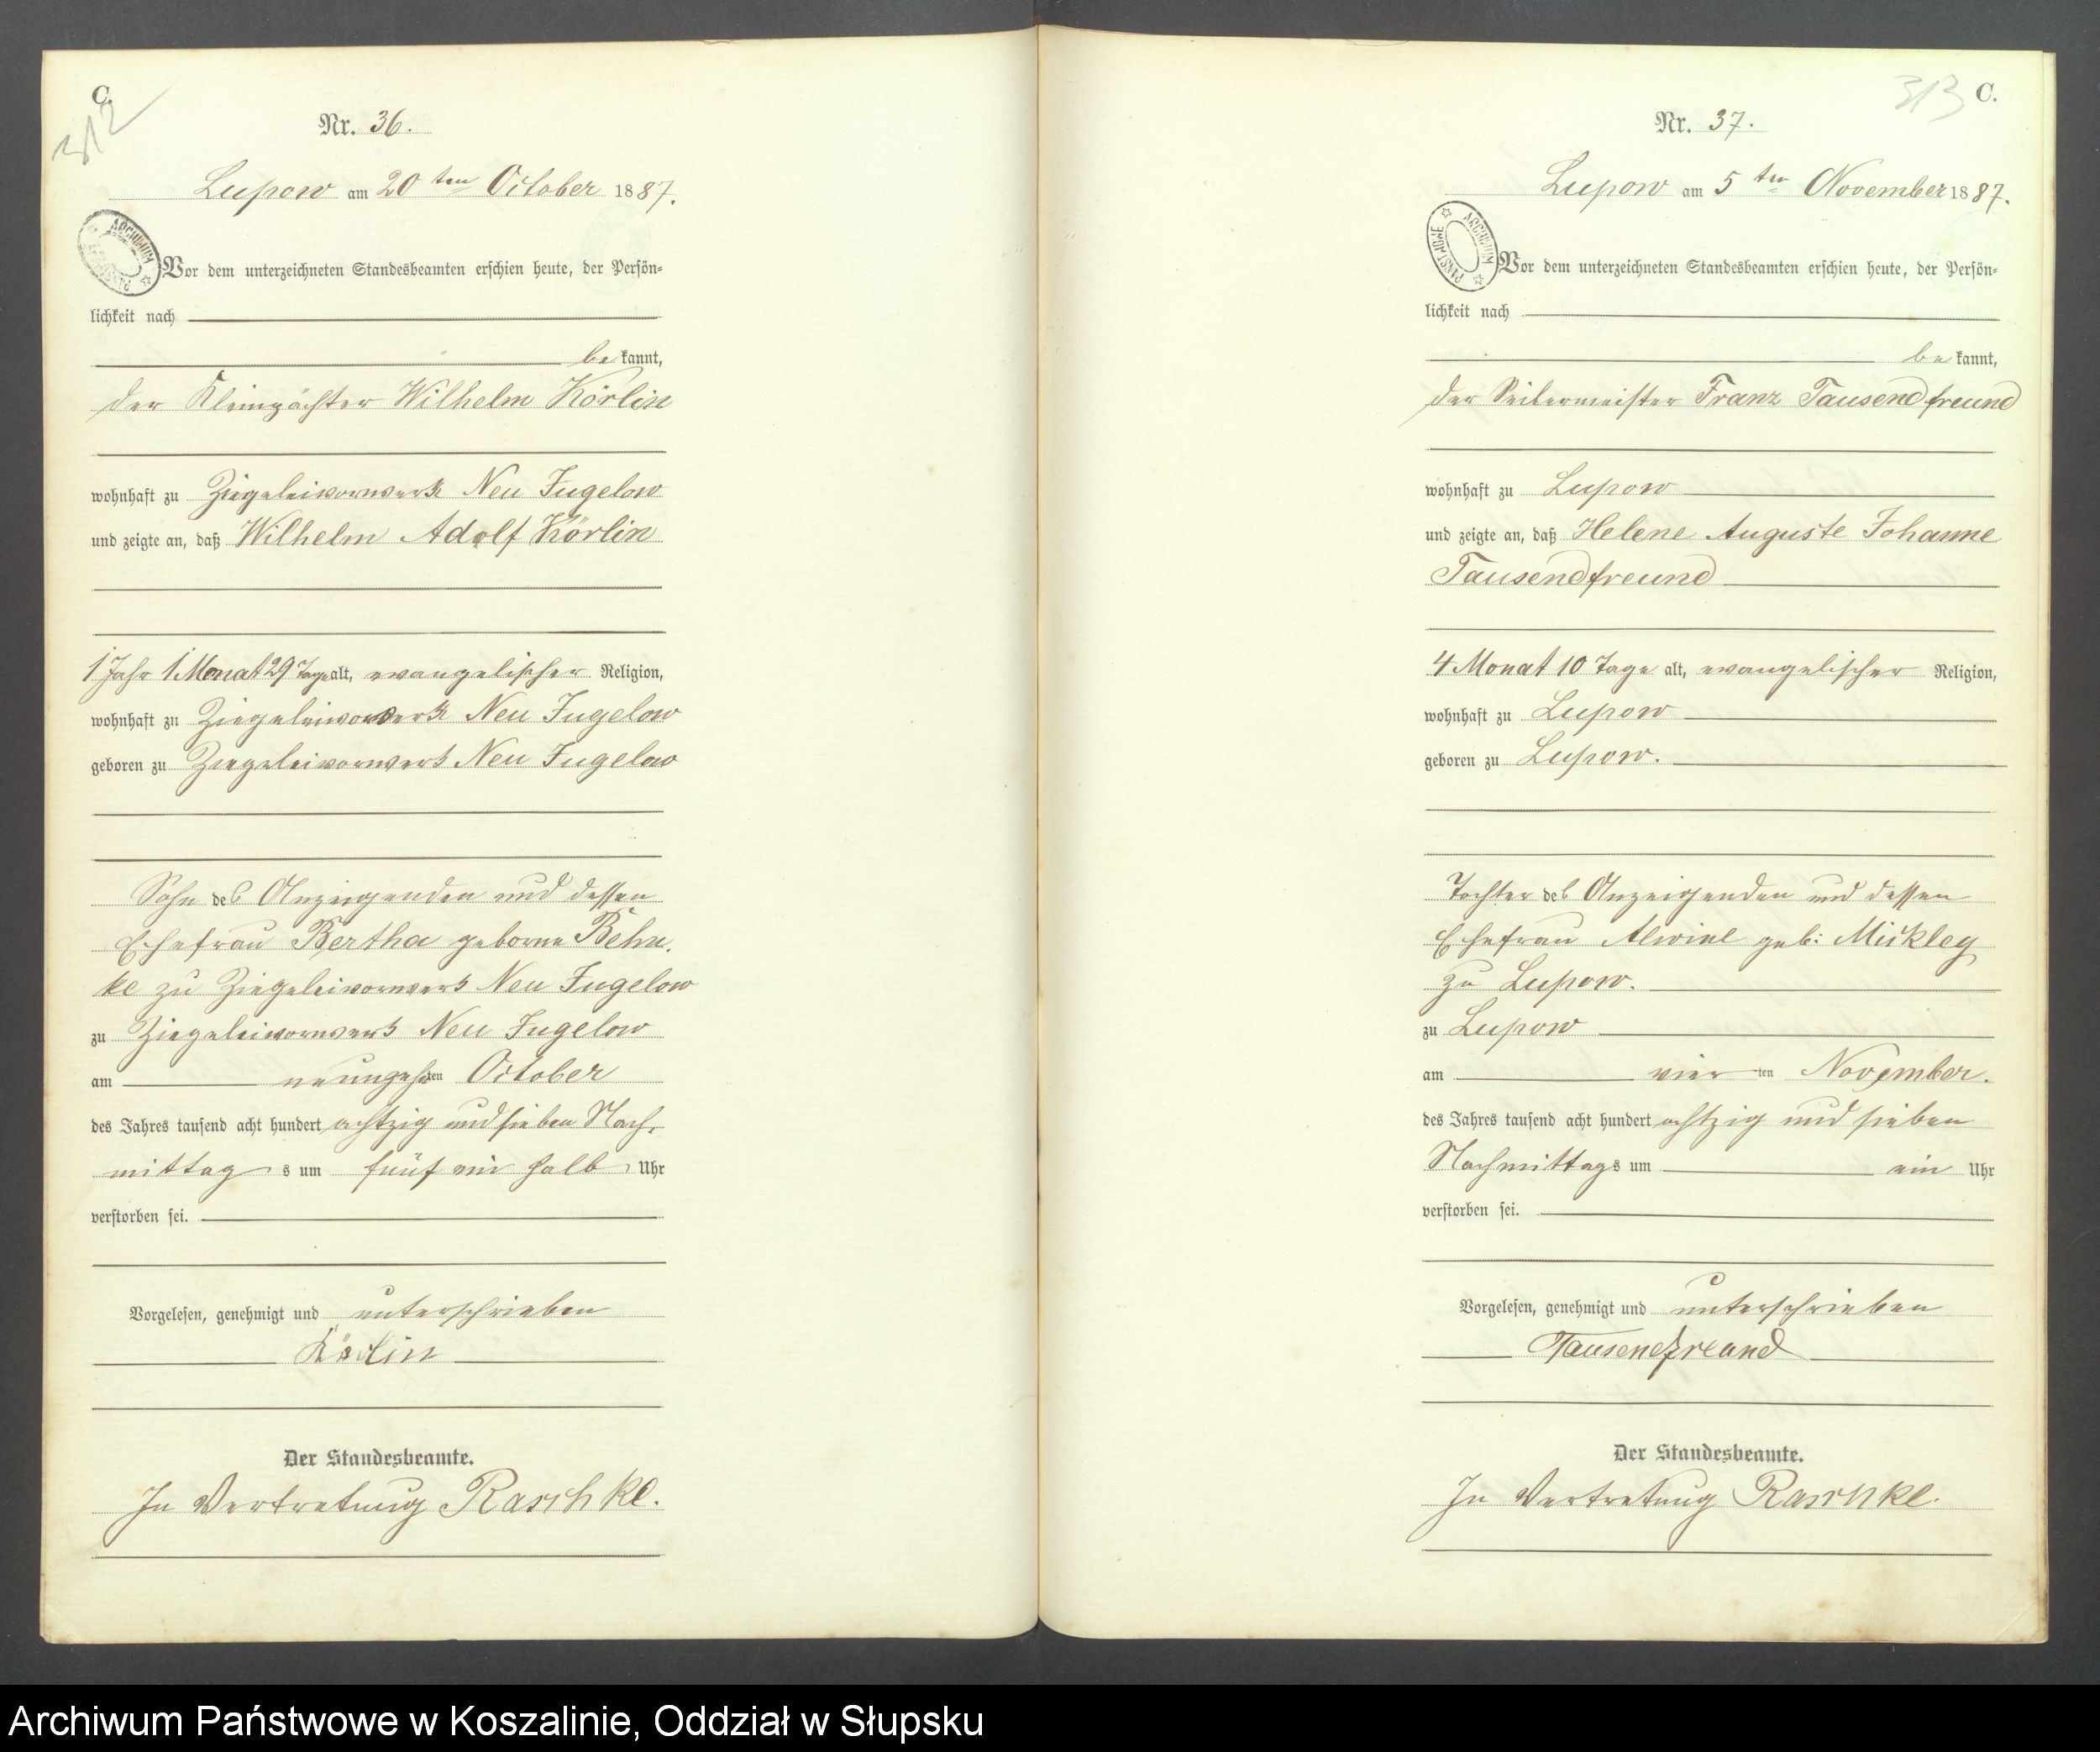 C.
312
Nr. 36.
Lupow am 20 ten October 1887.
ARCHIWUM
Vor dem unterzeichneten Standesbeamten erschien heute, der Persön-
lichkeit nach
bekannt,
der Kleinpächter Wilhelm Körlin
wohnhaft zu Ziegeleivorwerk Neu Jugelow
und zeigte an, daß Wilhelm Adolf Körlin
1 Jahr 1 Monat 29 Tage alt, evangelischer Religion,
wohnhaft zu Ziegeleivorwerk Neu Jugelow
geboren zu Ziegeleivorwerk Neu Jugelow
Sohn des Anzeigenden und dessen
Ehefrau Bertha geborne Behn-
ke zu Ziegeleivorwerk Neu Jugelow
zu Ziegeleivorwerk Neu Jugelow
am neunzehnten October
des Jahres tausend acht hundert achtzig und sieben Nach-
mittags um fünf ein halb Uhr
verstorben sei.
Vorgelesen, genehmigt und unterschrieben
Körlin
Der Standesbeamte.
In Vertretung Raschke.
313 C.
Nr. 37.
Lupow am 5 ten November 1887.
ARCHIWUM PAŃSTWOWE
Vor dem unterzeichneten Standesbeamten erschien heute, der Persön-
lichkeit nach
bekannt,
der Seilermeister Franz Tausendfreund
wohnhaft zu Lupow
und zeigte an, daß Helene Auguste Johanne
Tausendfreund
4 Monat 10 Tage alt, evangelischer Religion,
wohnhaft zu Lupow
geboren zu Lupow.
Tochter des Anzeigenden und dessen
Ehefrau Alwine geb: Mickley
zu Lupow.
zu Lupow
am vierten November.
des Jahres tausend acht hundert achtzig und sieben
Nachmittags um ein Uhr
verstorben sei.
Vorgelesen, genehmigt und unterschrieben
Tausendfreund
Der Standesbeamte.
In Vertretung Raschke.
Archiwum Państwowe w Koszalinie, Oddział w Słupsku